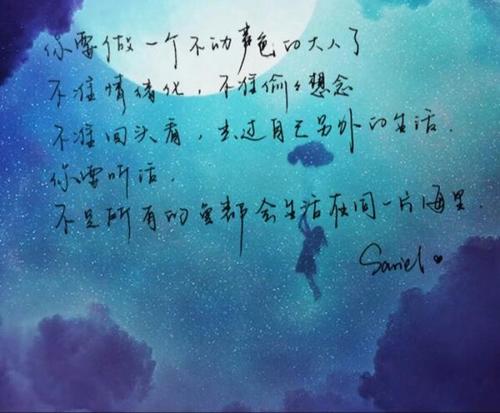 你要做一个不动声色的大人了
不准情绪化，不准偷偷想念
不准回头看，去过自己另外的生活.
你要听话.
不是所有的鱼都会生活在同一片海里.